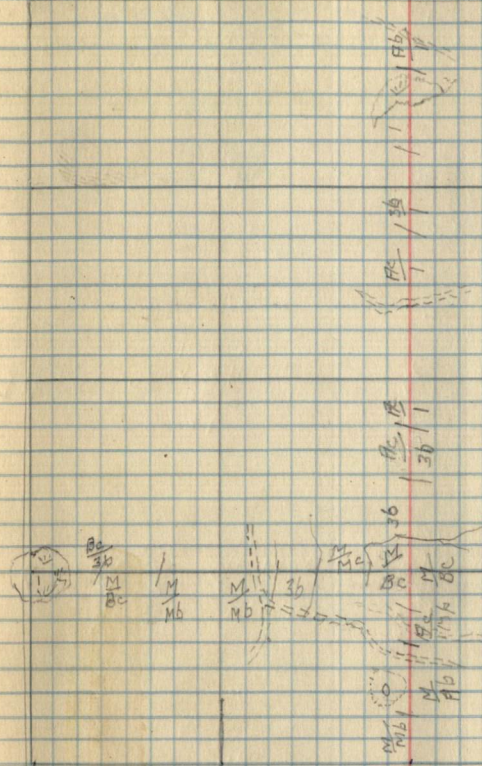 Ab
1
1
3b
1
Ac
1
Ac / Ac
3b | 1
3b
Bc
3b
M
Bc
M
Mb
M
Mb
3b
M
Mc
M
Bc
M
Bc
Ac
M
Mb
M
Ab